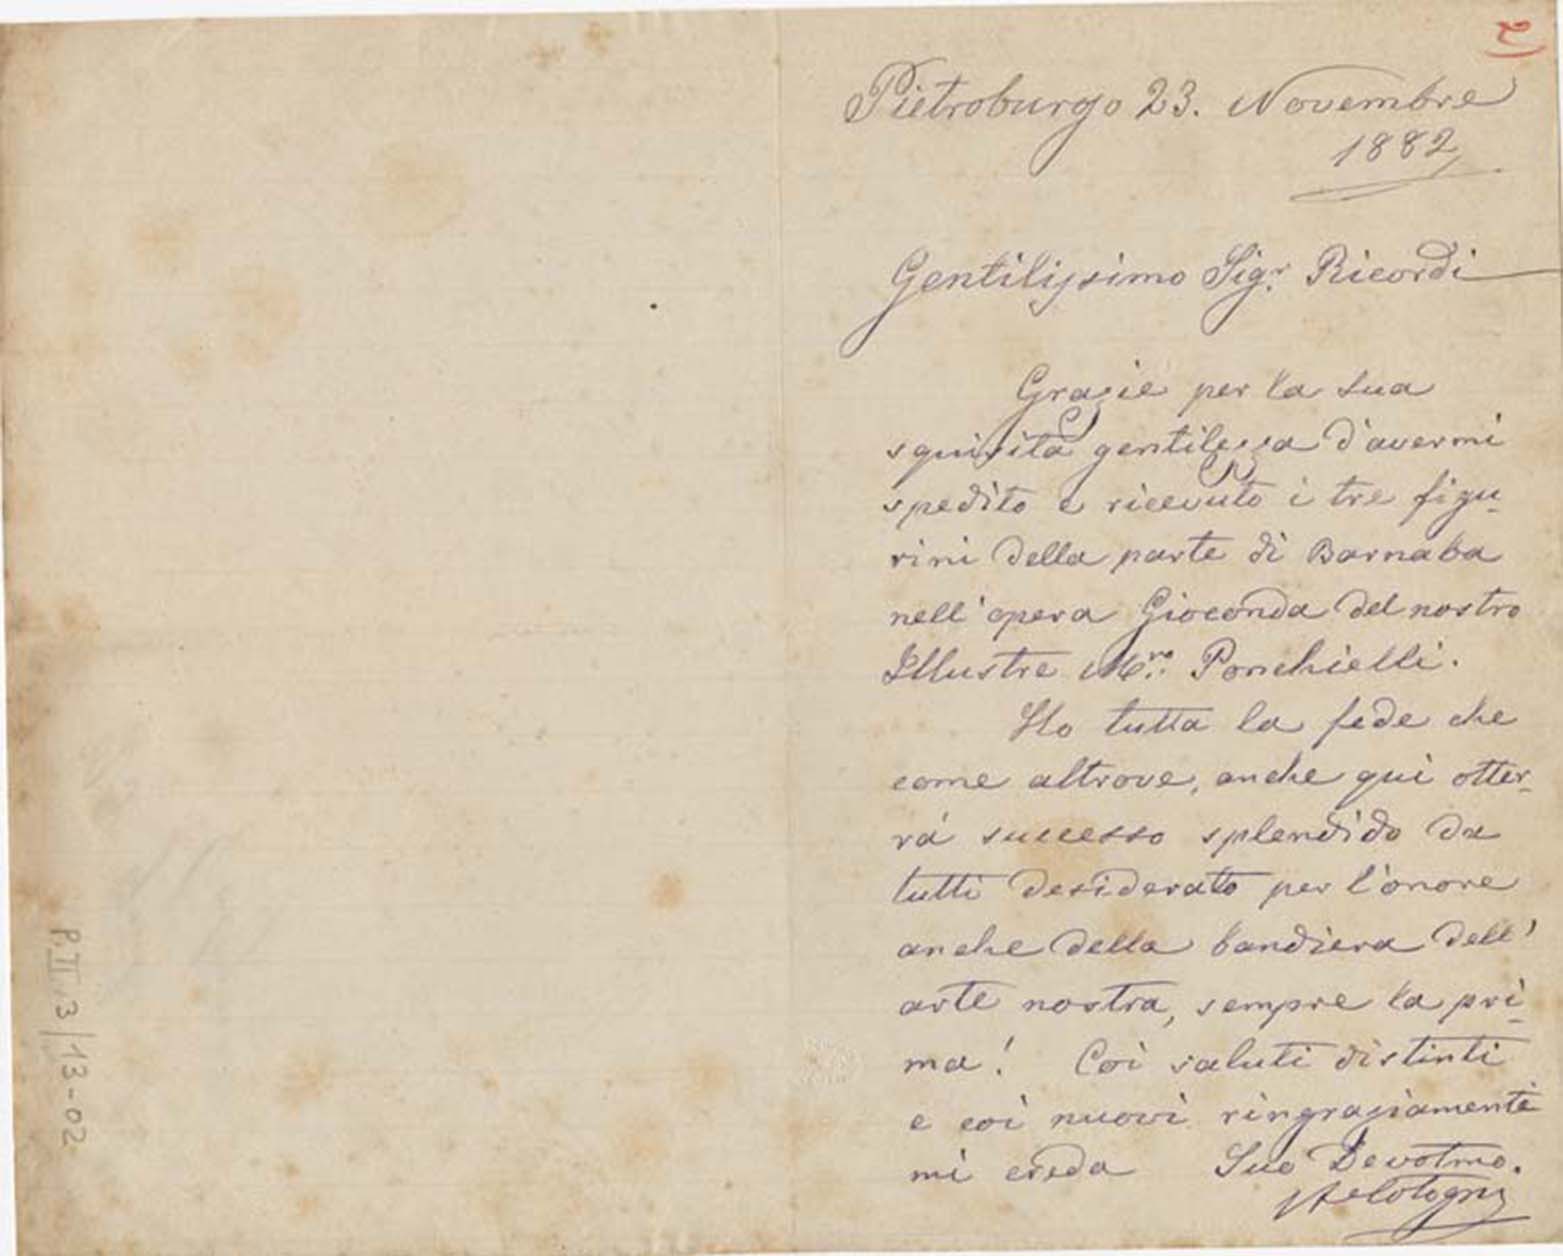 Pietroburgo 23. Novembre
1882
Gentilissimo Sigr. Ricordi
Grazie per la Sua
squisita gentilezza d'avermi
spedito e ricevuto i tre figu-
rini della parte di Barnaba
nell'opera Gioconda del nostro
Illustre Mro. Ponchielli.
Ho tutta la fede che
come altrove, anche qui otter-
rá successo splendido da
tutti desiderato per l'onore
anche della bandiera dell'
arte nostra, sempre la pri-
ma! Coi saluti distinti
e coi nuovi ringraziamenti
mi creda Suo Devotmo.
ACotogni
P.II 3/13-02